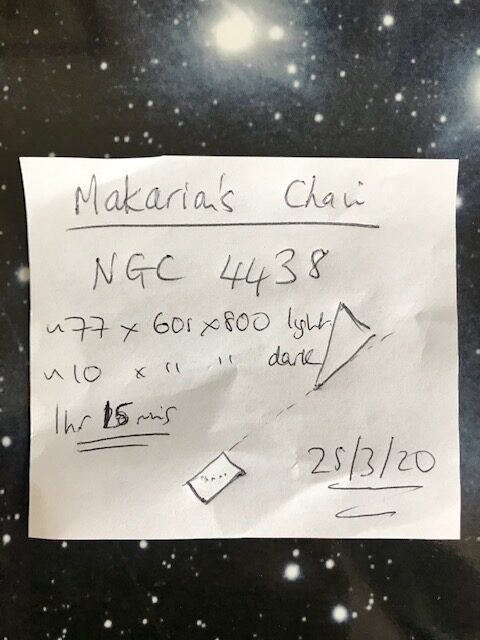 Makarian's Chain
NGC 4438
~77 x 60s x 800 light
~10 x " " dark
1hr 15 mins
25/3/20